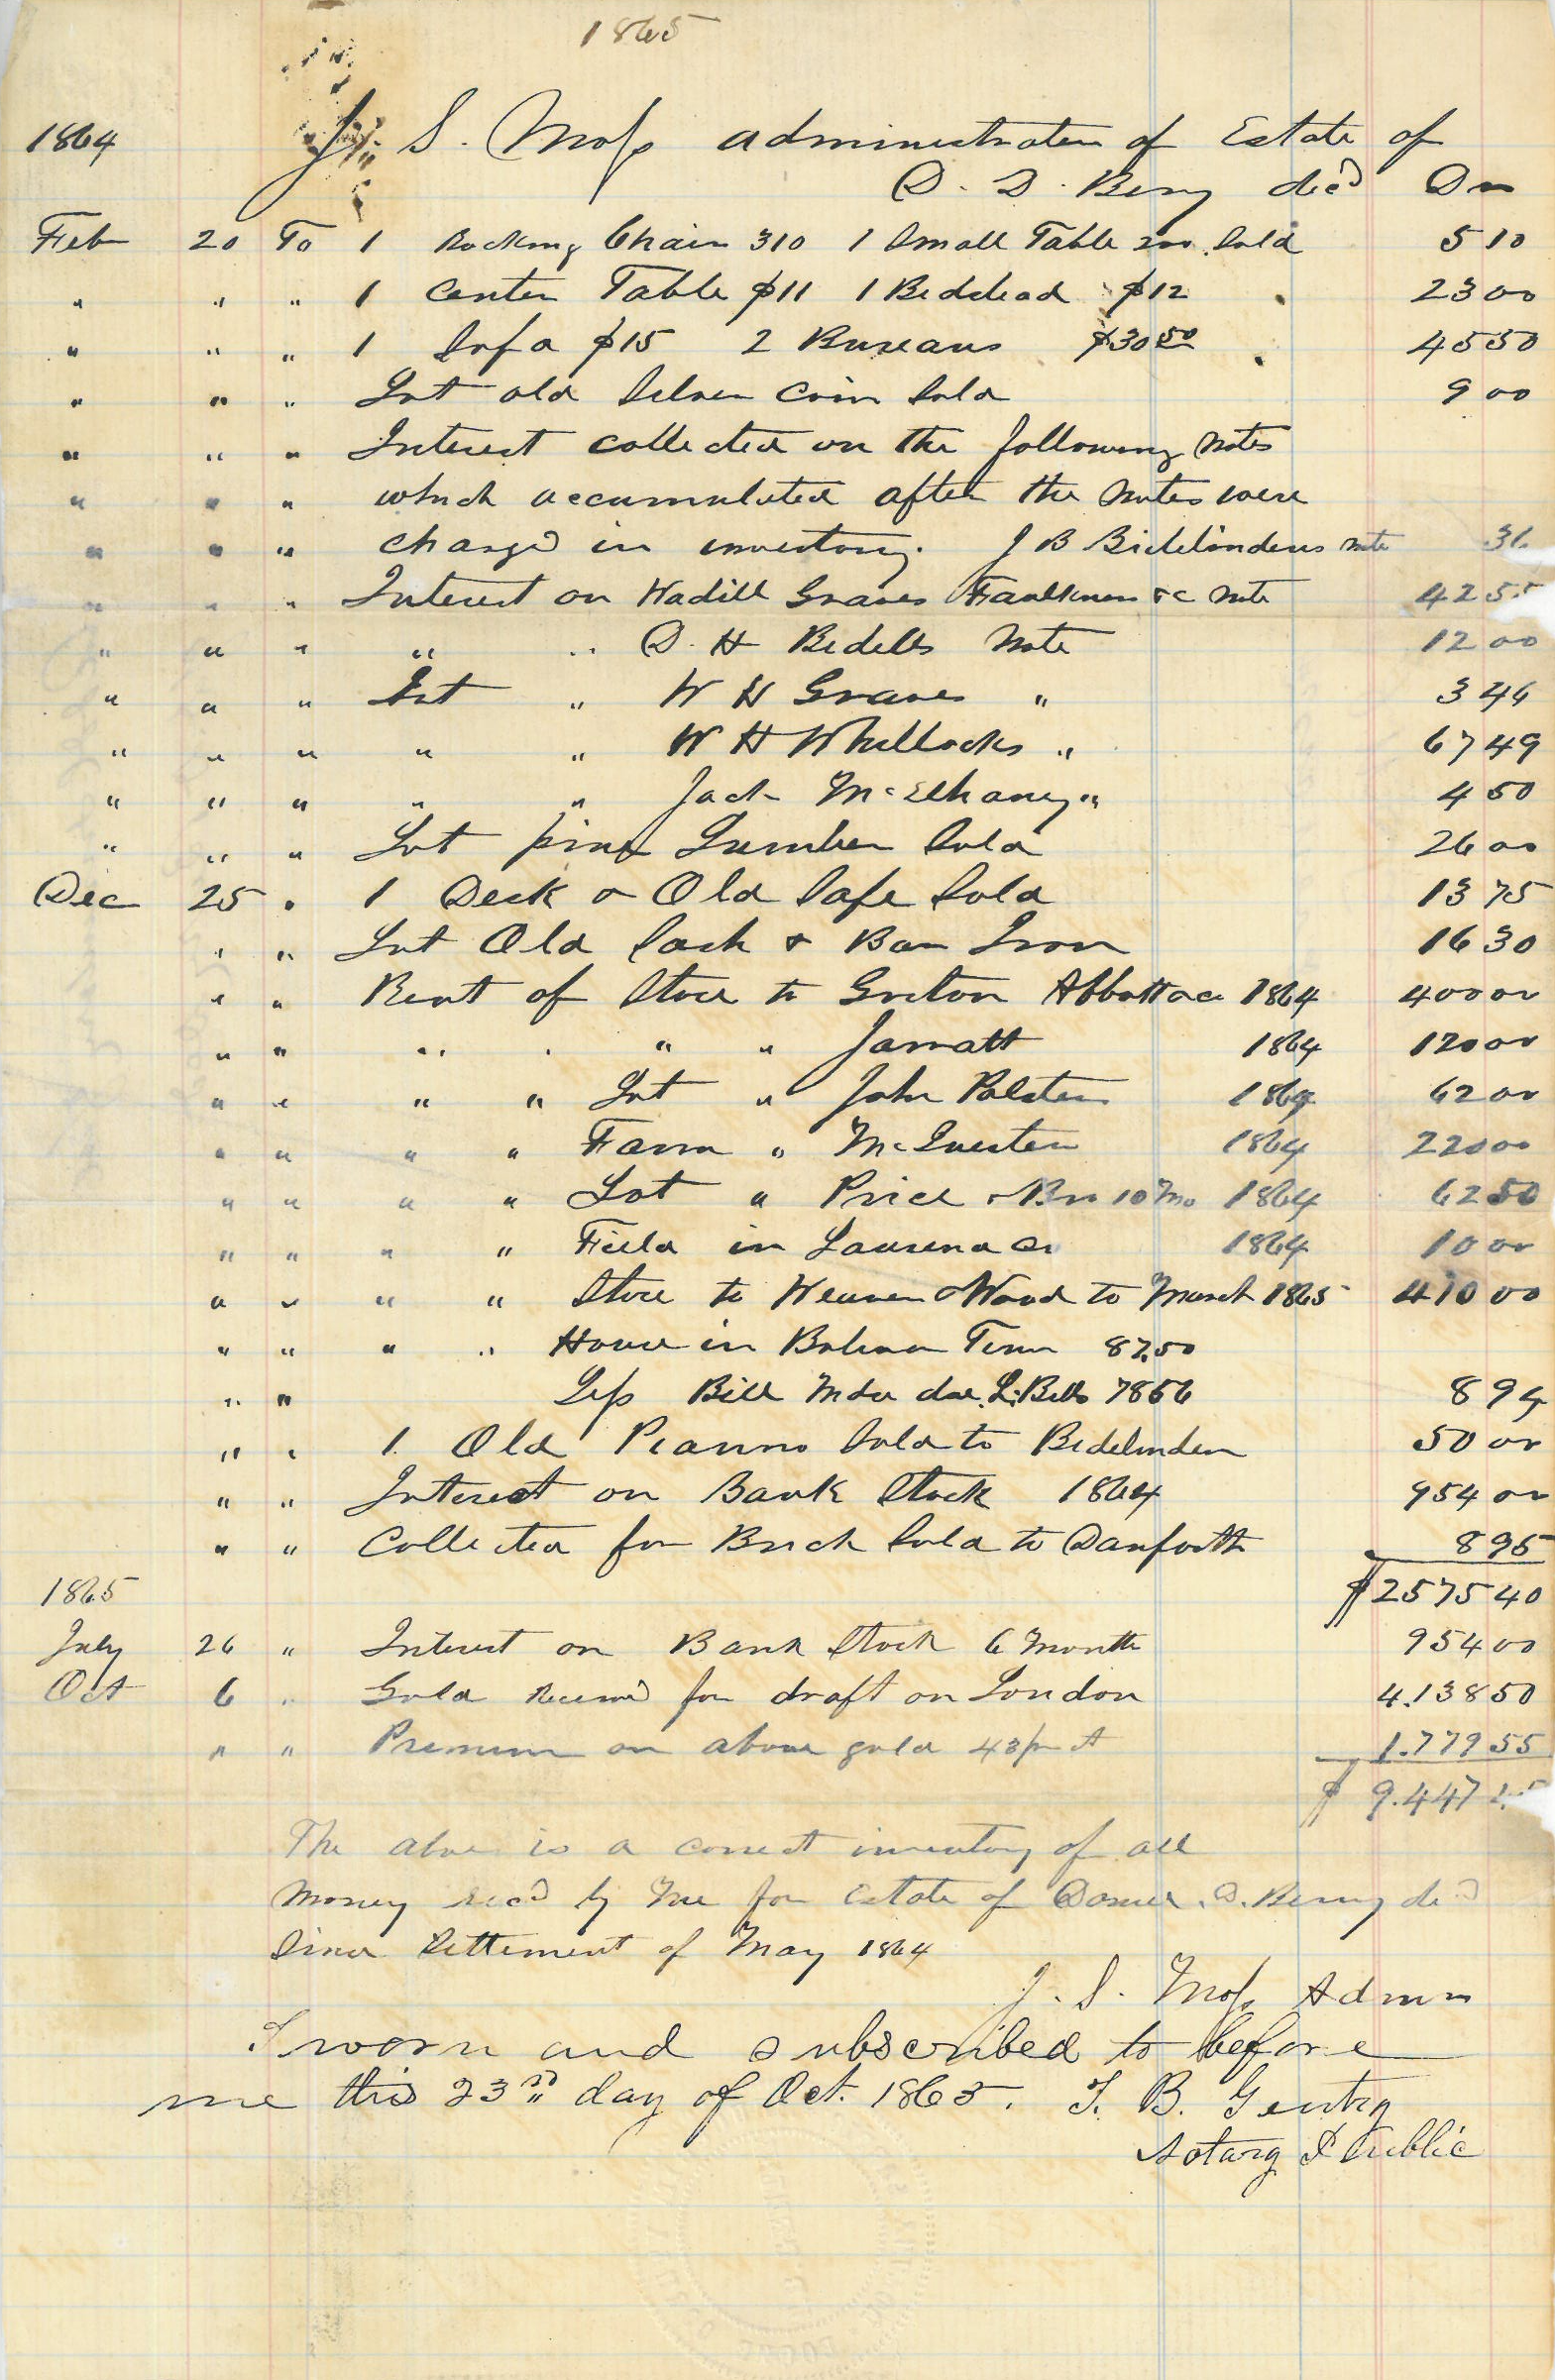 1865
1864 J. S. Moss administrator of Estate of
D. D. Berry dec'd Dr
Feb 20 To 1 Rocking Chair 310 1 Small Table 200 Sold 5 10
" " " 1 Center Table $11 1 Bedstead $12 23 00
" " " 1 Sofa $15 2 Bureaus $30 50 45 50
" " " Lot old Silver Coin Sold 9 00
" " " Interest collected on the following notes
" " " which accumulated after the notes were
" " " charg'd in inventory. J B Bidelinders note 36
" " " Interest on Hadill Graves Faulkner &c note 42 55
" " " " " D. H Bedells Note 12 00
" " " Int " W H Graves " 3 46
" " " " " W H Whillocks " 67 49
" " " " " Jack McElhaney " 4 50
" " " Lot pine Lumber Sold 26 00
Dec 25 " 1 Desk & Old Safe Sold 13 75
" " Lot Old Sash & Bar Iron 16 30
" " Rent of Store to Greton Abbott &co 1864 400 00
" " " " " " Jarratt 1864 120 00
" " " " Lot " John Polsten 1864 62 00
" " " " Farm " McQuerten 1864 220 00
" " " " Lot " Price & Bro 10 Mo 1864 62 50
" " " " Field in Laurena Co 1864 10 00
" " " " Store to Weaver & Wood to March 1865 410 00
" " " " House in Bolivar Tenn 87.50
" " Less Bill Mdse due L. Bells 78 56 8 94
" " 1 Old Pianno Sold to Bidelinder 50 00
" " Interest on Bank Stock 1864 954 00
" " Collected for Brick Sold to Danforth 8 95
1865 $2575 40
July 26 " Interest on Bank Stock 6 Month 954 00
Oct 6 " Gold Receiv'd for draft on London 4.138 50
" " Premium on above gold 43 pr ct 1.779 55
$ 9.447
The above is a correct inventory of all
money rec'd by me for Estate of D. Berry de'd
Since Settlement of May 1864
J. S. Moss Admr
Sworn and subscribed to before
me this 23rd day of Oct. 1865. T. B. Gentry
Notary Public